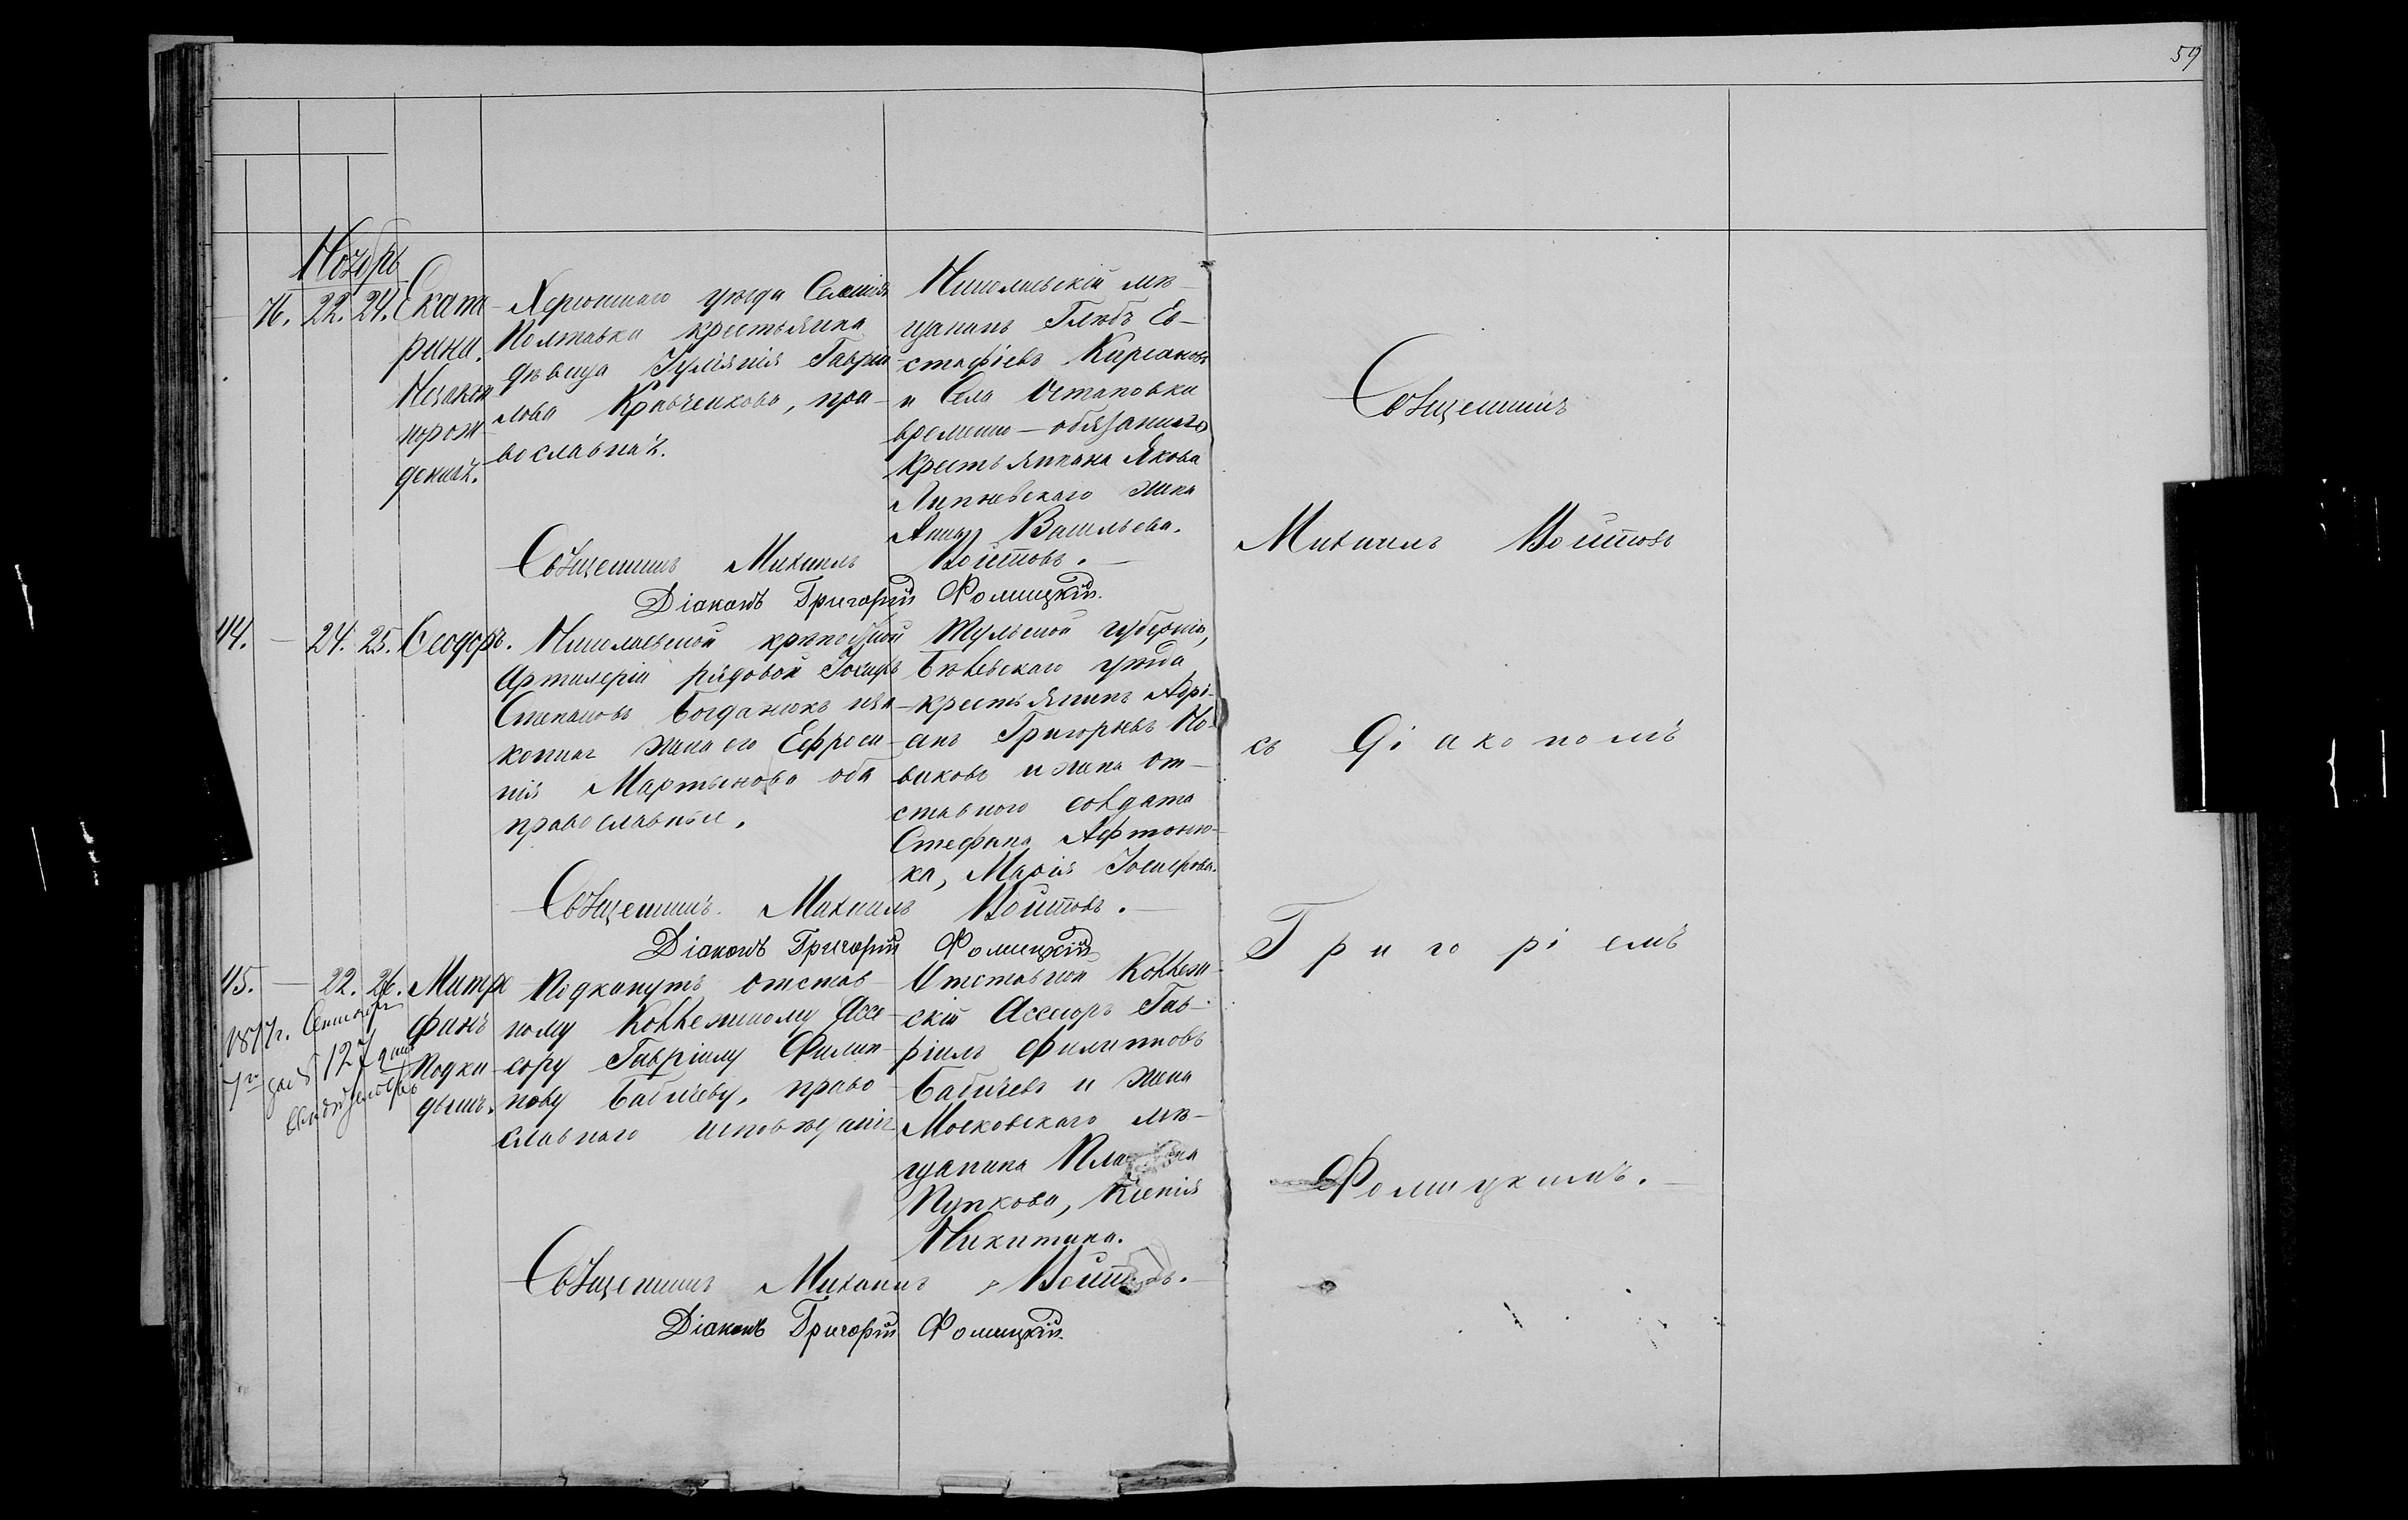 59
Ноябрь
76. 22. 24. Екате-
рина.
Незакон
порож
денная.
Херсонскаго уѣзда Селенія
Полтавки крестьянка
дѣвица Іуліянія Гаврiи-
лова Кравченкова, пра-
вославная.
Николаевскій мѣ-
щанинъ Глѣбъ Ев-
стафіевъ Кирсановъ
и Села Остаповки
временно-обязаннаго
крестьянина Якова
Липневскаго жена
Анна Васильева.
Священникъ Михаилъ Войтовъ.
Діаконъ Григорій Фомицкій.
44. — 24. 25. Ѳеодоръ.
Николаевской крѣпостной
Артилеріи рядовой Іосифъ
Степановъ Богданюкъ и за-
конная жена его Ефроси-
нія Мартынова оба
православные.
Тульской губерніи,
Бѣлевскаго уѣзда
крестьянинъ Адрі-
анъ Григорьевъ Но-
виковъ и жена от-
ставного солдата
Стефана Афтоню-
ка, Марія Іосифова.
Священникъ Михаилъ Войтовъ.
Діаконъ Григорій Фомицкій
45. — 22. 26. Митро
фанъ
Подки
дышъ.
1877г. Сентября
7го за № 127 дано
свидѣтельство
Подкинутъ отстав-
ному Коллежскому Ассе-
сору Гавріилу Филип-
пову Бабичеву, право-
славнаго исповѣданія
Отставной Коллеж-
скій Ассесоръ Гав-
ріилъ Филипповъ
Бабичевъ и жена
Московскаго мѣ-
щанина
Пупкова, Ксенія
Никитина.
Священникъ Михаилъ Войтовъ.
Діаконъ Григорій Фомицкій.
Священникъ
Михаилъ Войтовъ
съ Діакономъ
Григоріемъ
Фомицкимъ.